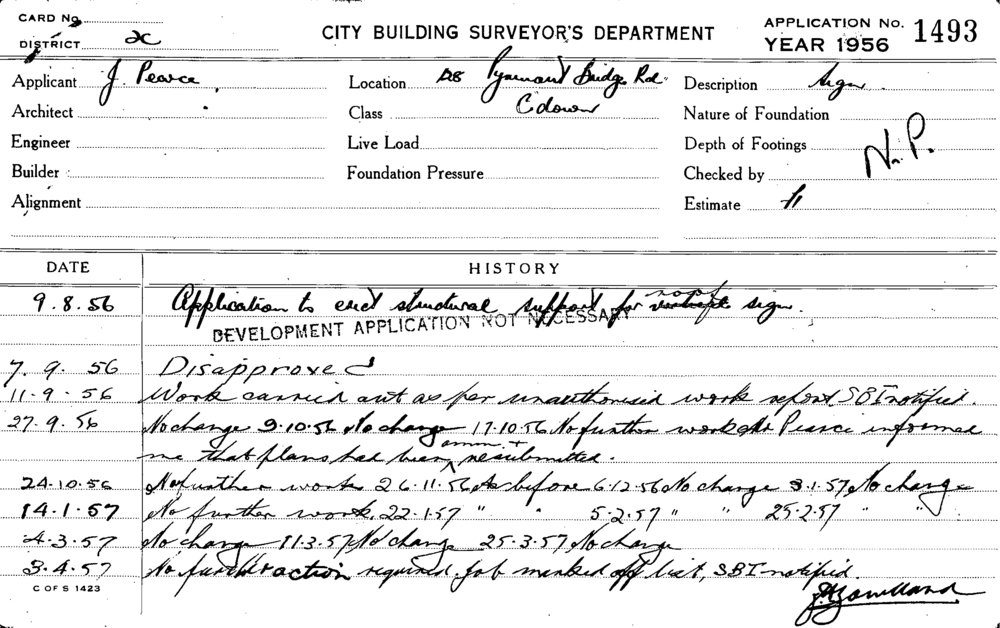 CARD No.
DISTRICT x
CITY BUILDING SURVEYOR'S DEPARTMENT
APPLICATION No. 1493
YEAR 1956
Applicant J. Pearce
Location 128 Pyrmont Bridge Rd.
Description Sign
Architect
Class Cdown
Nature of Foundation
Engineer
Live Load
Depth of Footings
N.P.
Builder
Foundation Pressure
Checked by
Alignment
Estimate
DATE
HISTORY
9.8.56 Application to erect structural support for roof sign.
DEVELOPMENT APPLICATION NOT NECESSARY
7.9.56 Disapproved
11.9.56 Work carried out as per unauthorised work report SBI notified.
27.9.56 No change 9.10.56 No change 17.10.56 No further work Mr Pearce informed
me that plans had been amm. + resubmitted.
24.10.56 No further work 26.11.56 As before 6.12.56 No change 3.1.57 No change
14.1.57 No further work, 22.1.57 " " 5.2.57 " " 25.2.57 " "
4.3.57 No change 11.3.57 No change 25.3.57 No change
3.4.57 No further action required, job marked off list, SBI notified.
C OF S 1423